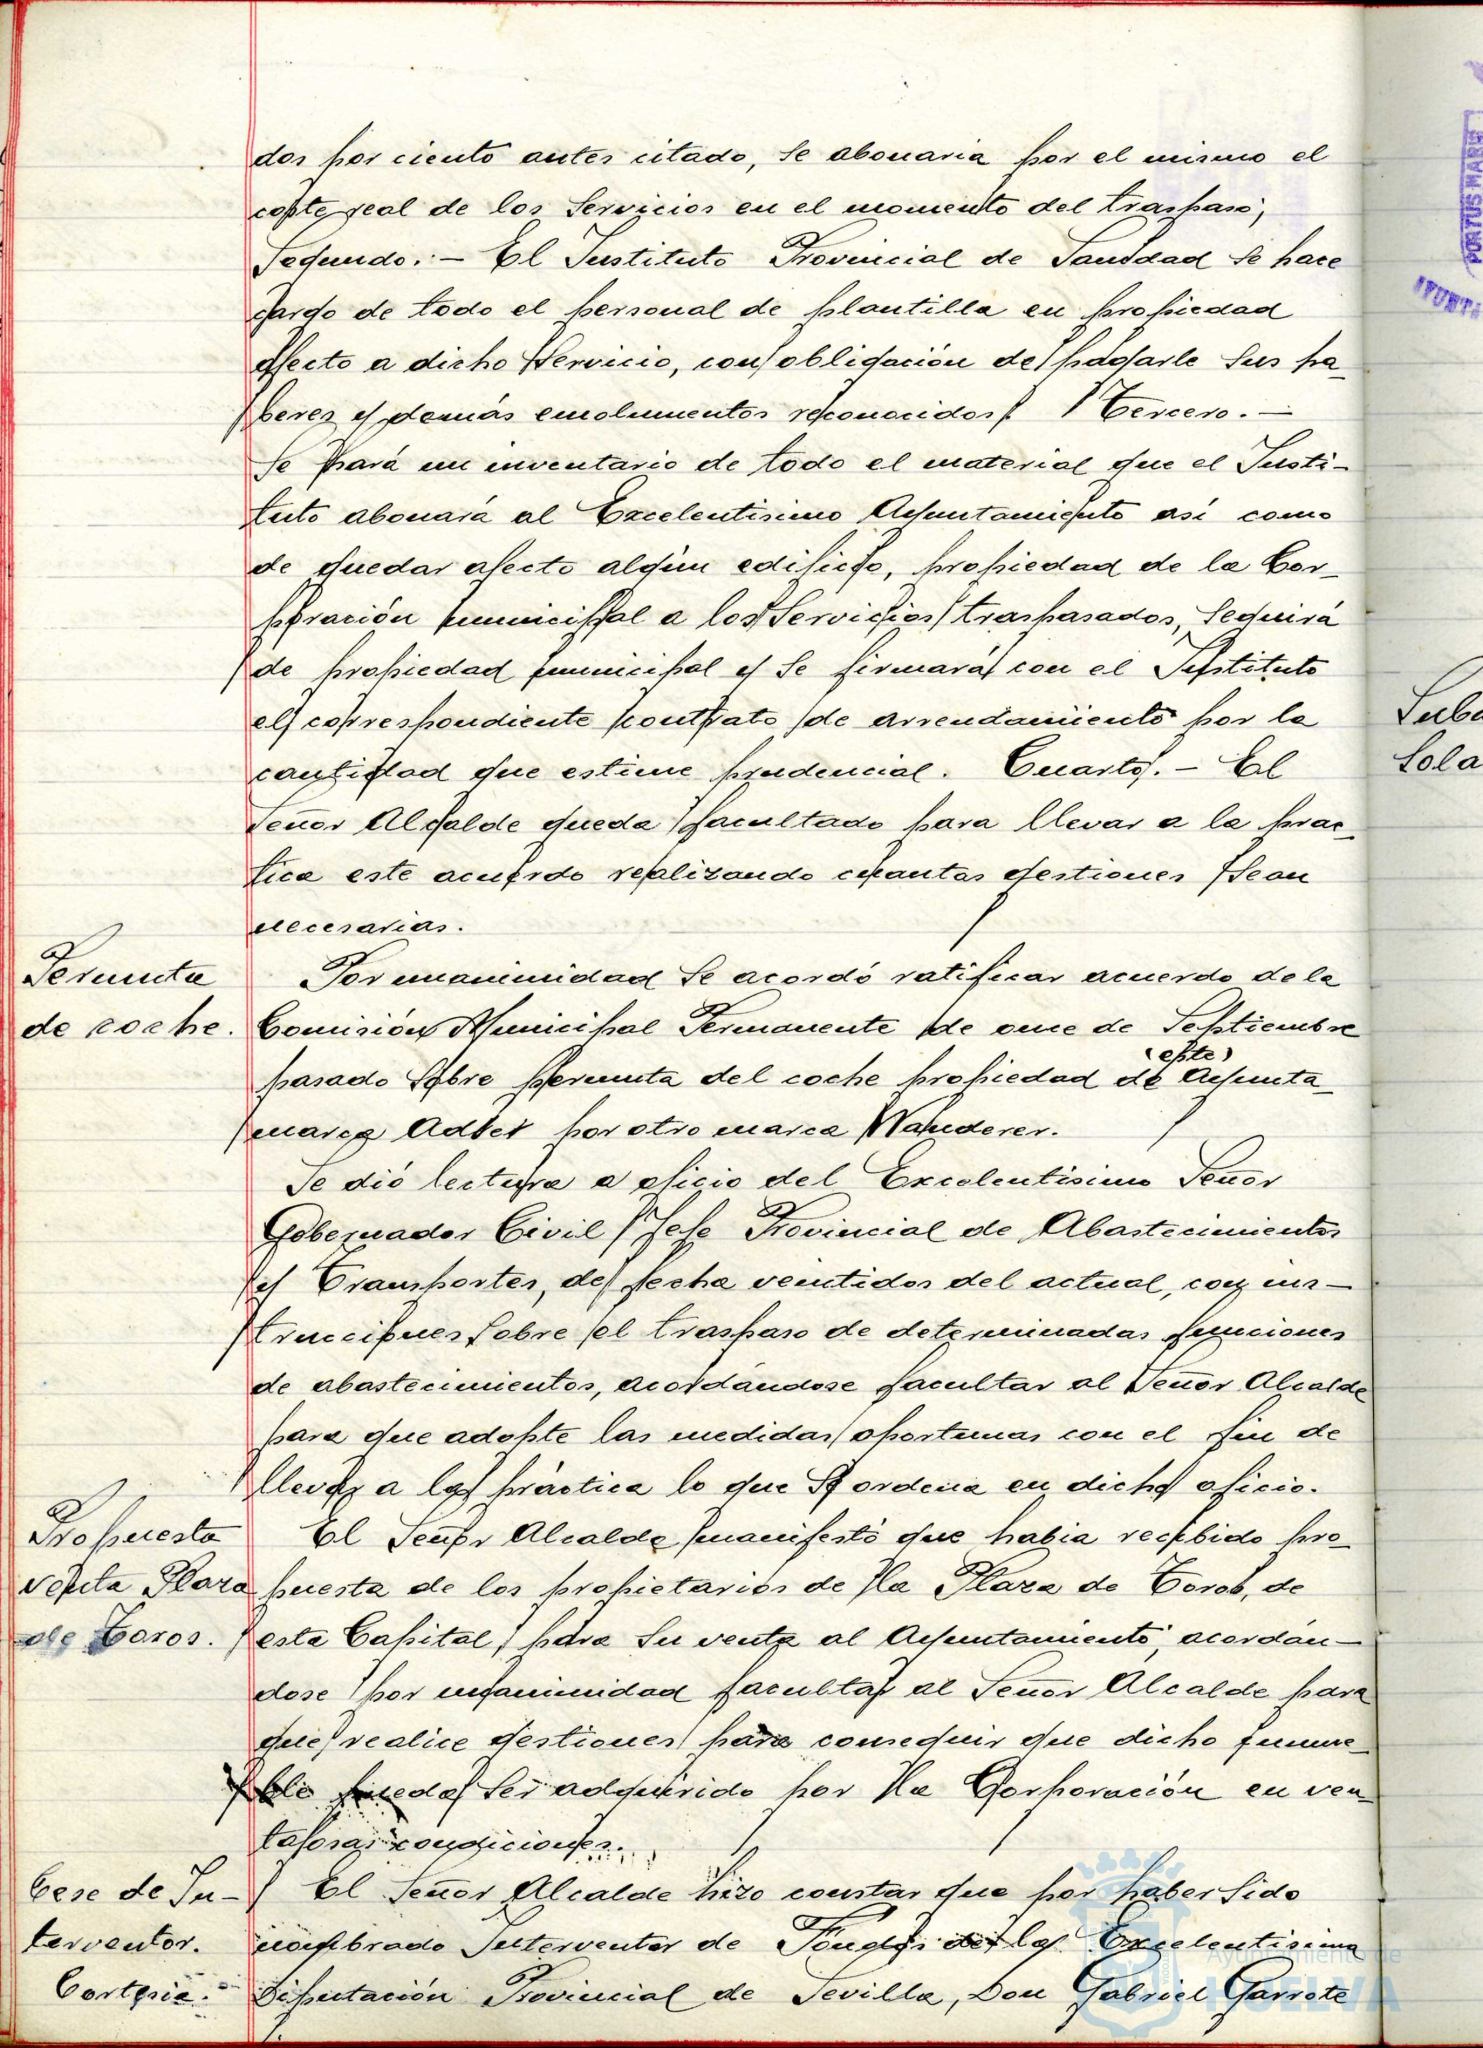 dos por ciento antes citado, se abonaria por el mismo el
coste real de los Servicios en el momento del traspaso,
Segundo.- El Instituto Provincial de Sanidad se hace
cargo de todo el personal de plantilla en propiedad
afecto a dicho Servicio, con obligación de pagarle sus ha-
beres y demás emolumentos reconocidos. Tercero.-
Se hará un inventario de todo el material que el Insti-
tuto abonará al Excelentisimo Ayuntamiento asi como
de quedar afecto algún edificio, propiedad de la Cor-
poración municipal a los Servicios traspasados, seguirá
de propiedad municipal y se firmará con el Instituto
el correspondiente contrato de arrendamiento por la
cantidad que estime prudencial. Cuarto.- El
Señor Alcalde queda facultado para llevar a la prac-
tica este acuerdo realizando cuantas gestiones sean
necesarias.
Permuta
de coche.
Por unanimidad se acordó ratificar acuerdo de la
Comisión Municipal Permanente de once de Septiembre
(este)
pasado sobre permuta del coche propiedad de Ayunta-
marca Adler por otro marca Wanderer.
Se dió lectura a oficio del Excelentisimo Señor
Gobernador Civil Jefe Provincial de Abastecimientos
y Transportes, de fecha veintidos del actual, con ins-
trucciones sobre el traspaso de determinadas funciones
de abastecimientos, acordándose facultar al Señor Alcalde
para que adopte las medidas oportunas con el fin de
llevar a la práctica lo que se ordena en dicho oficio.
Propuesta
venta Plaza
de Toros.
El Señor Alcalde manifestó que habia recibido pro-
puesta de los propietarios de la Plaza de Toros, de
esta Capital, para su venta al Ayuntamiento, acordán-
dose por unanimidad facultar al Señor Alcalde para
que realice gestiones para conseguir que dicho inmue-
ble pueda ser adquirido por la Corporación en ven-
tajosas condiciones.
Cese de In-
terventor.
El Señor Alcalde hizo constar que por haber sido
nombrado Interventor de Fondos de la Excelentisima
Diputación Provincial de Sevilla, Don Gabriel Garrote
PORTUS MARIS
Ayuntamiento de
HUELVA